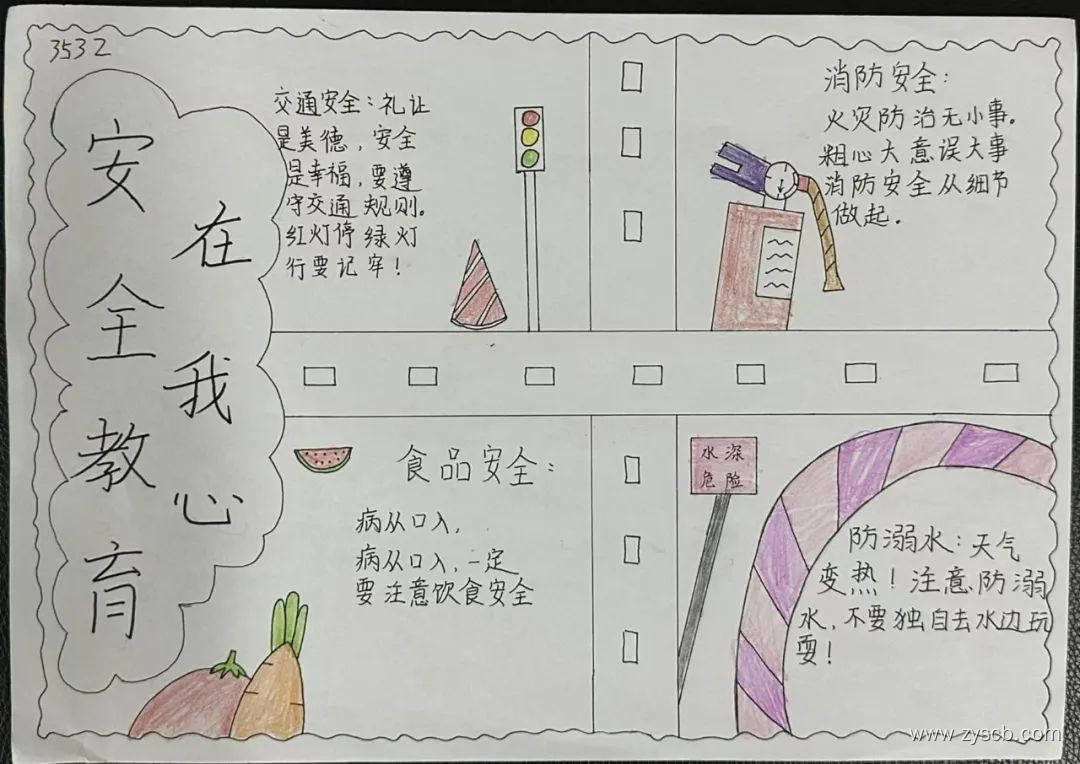 3532
安全教育
在我心
交通安全：礼让
是美德，安全
是幸福，要遵
守交通规则。
红灯停绿灯
行要记牢！
消防安全：
火灾防治无小事。
粗心大意误大事
消防安全从细节
做起.
食品安全：
病从口入,
病从口入,一定
要注意饮食安全
水深
危险
防溺水：天气
变热！注意防溺
水,不要独自去水边玩
耍！
www.zyscb.com